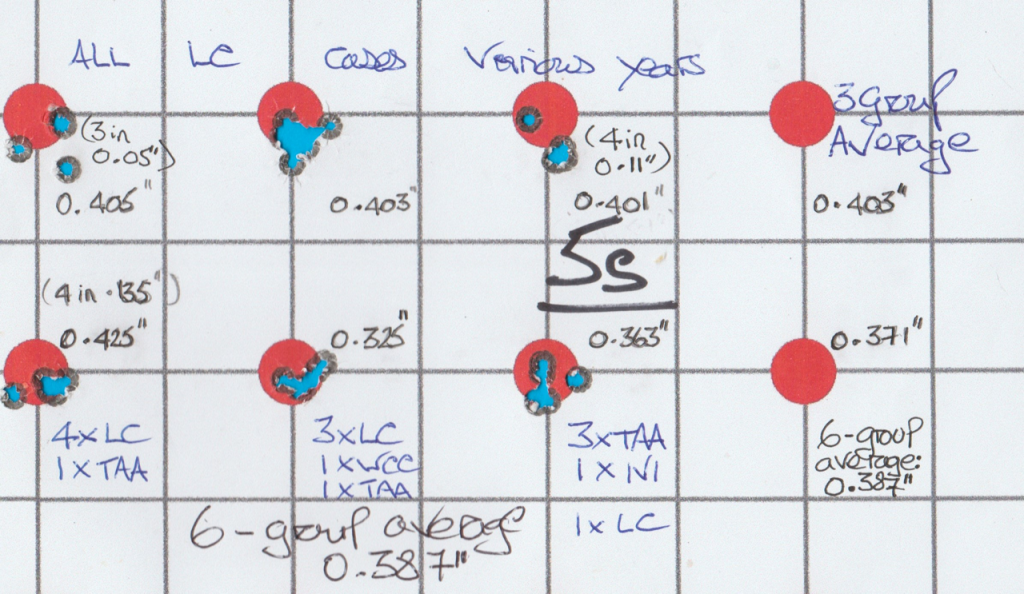 ALL LC Cases Various years
(3 in
0.05")
0.405"
0.403"
(4 in
0.11")
0.401"
3 Group
Average
0.403"
5s
(4 in .135")
0.425"
4xLC
1xTAA
0.325"
3xLC
1xWCC
1xTAA
0.363"
3xTAA
1xIVI
1xLC
0.371"
6-group
average:
0.387"
6-group average
0.387"